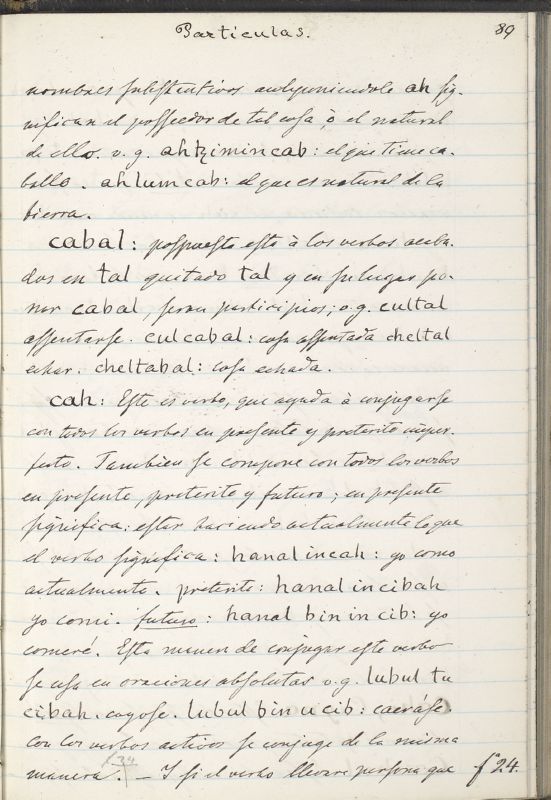 Particulas. 89
nombres substantivos anteponiendole ah sig-
nifican el possedor de tal cosa, ò el natural
de ello. v. g. ahtzimincab: el que tiene ca-
ballo. ahlumcab: el que es natural de la
tierra.
cabal: pospuesta esta à los verbos acaba-
dos en tal quitado tal y en su lugar po-
ner cabal, seran participios; v. g. cultal
assentarse. culcabal: cosa assentada cheltal
echar. cheltabal: cosa echada.
cah: Este es verbo, que ayuda à conjugarse
con todos los verbos en presente y preterito imper-
fecto. Tambien se compone con todos los verbos
en presente, preterito y futuro; en presente
significa: estar haciendo actualmente lo que
el verbo significa: hanal incah: yo como
actualmente. preterito: hanal incibah
yo comi. futuro: hanal bin in cib: yo
comeré. Esta manera de conjugar este verbo
se usa en oraciones absolutas v. g. lubul tu
cibah. cayose. lubul bin u cib: caeráse.
con los verbos activos se conjuga de la misma
manera. — Y si el verbo llevare persona que fº 24.
34